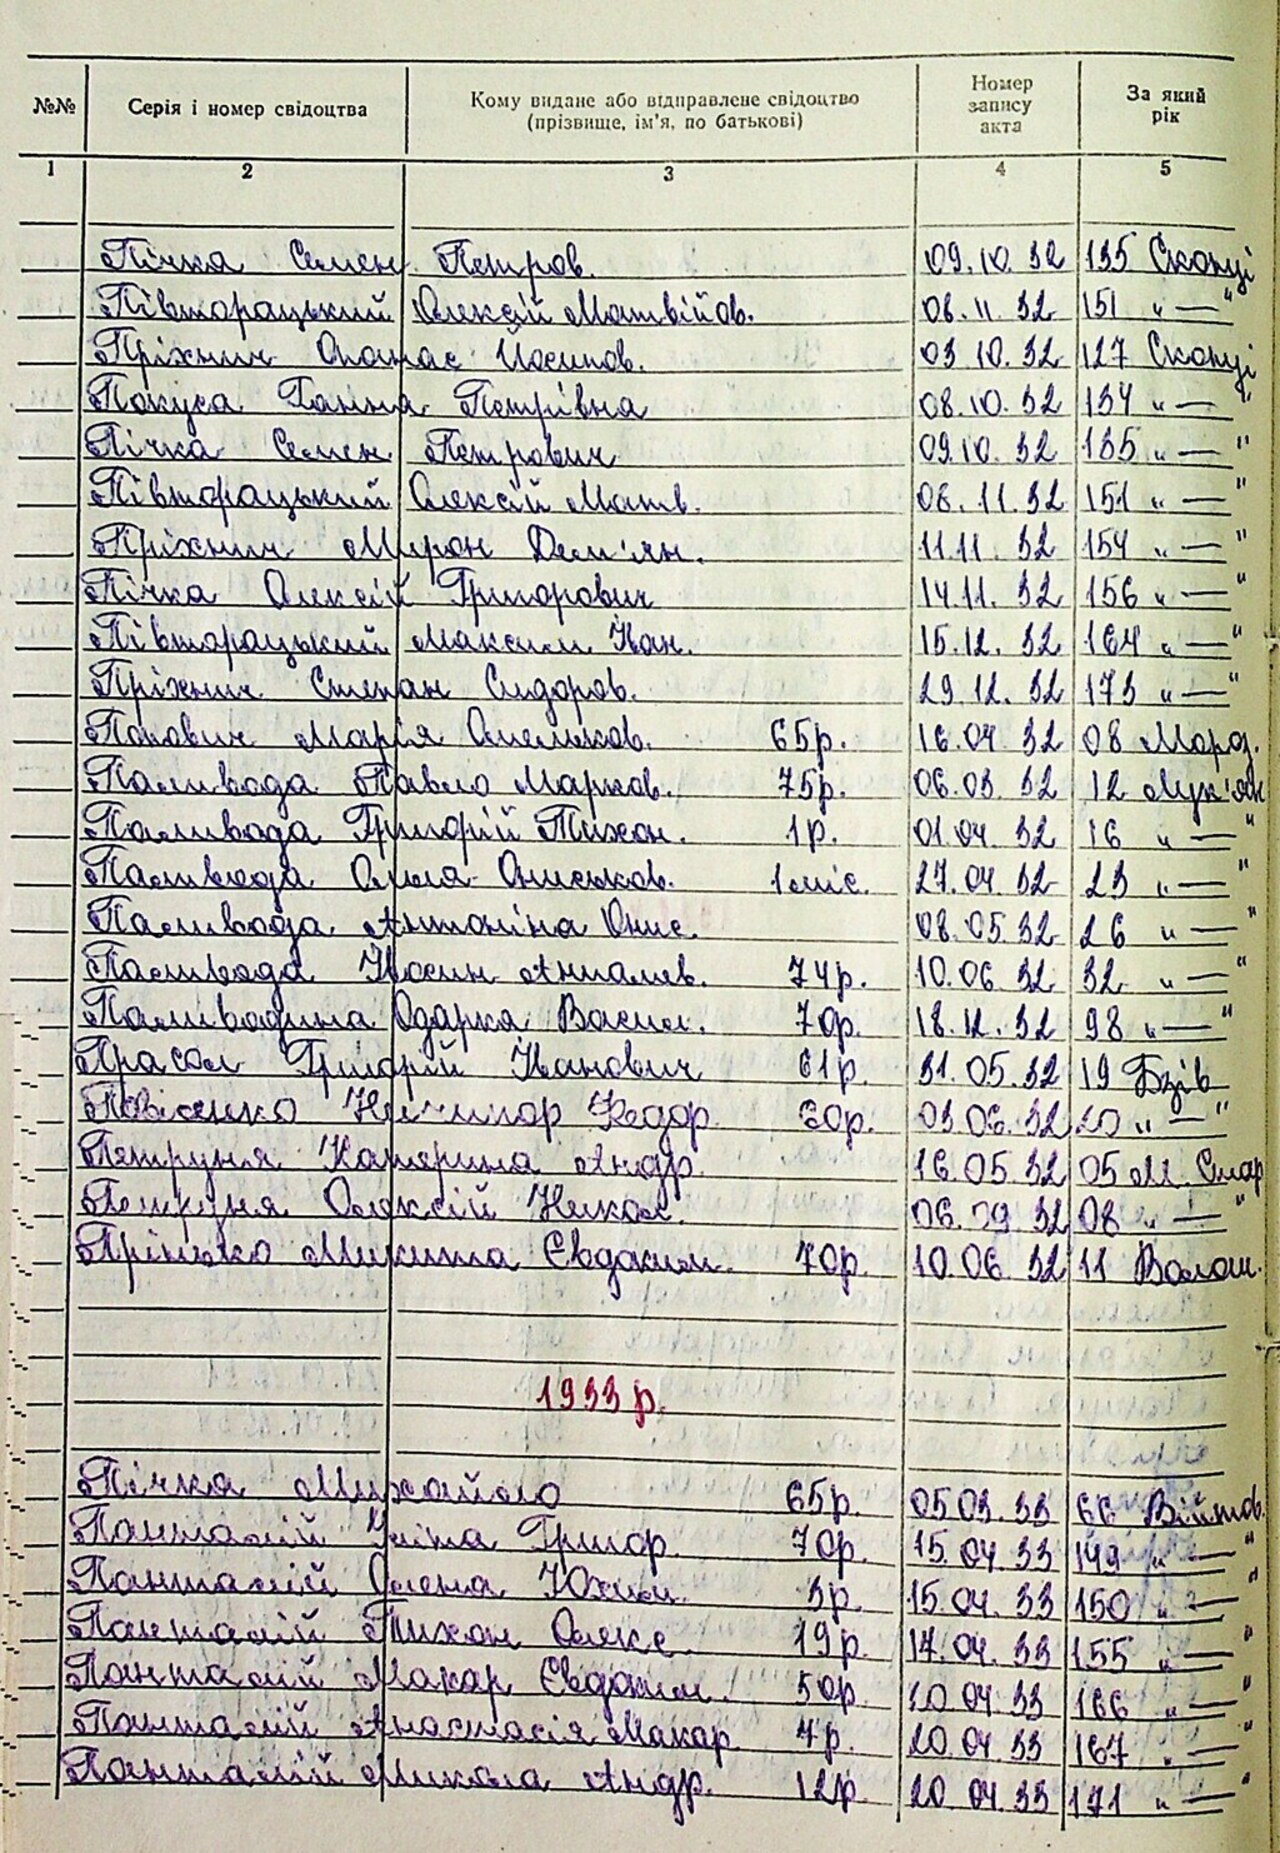 №№ Серія і номер свідоцтва Кому видане або відправлене свідоцтво (прізвище, ім'я, по батькові) Номер запису акта За який рік
1 2 3 4 5
Пічка Семен Петров. 09.10.32 135 Скопці
Півторацький Олексій Матвійов. 08.11.32 151 " — "
Пріхнич Опанас Йосипов. 03.10.32 127 Скопці
Покуса Ганна Петрівна 08.10.32 134 " — "
Пічка Семен Петрович 09.10.32 135 " — "
Півторацький Олексій Матв. 08.11.32 151 " — "
Пріхнич Мирон Дем'ян. 11.11.32 154 " — "
Пічка Олексій Григорович 14.11.32 156 " — "
Півторацький Максим Іван. 15.12.32 164 " — "
Пріхнич Степан Сидоров. 29.12.32 173 " — "
Попович Марія Омельков. 65р. 16.04.32 08 Мороз.
Паливода Павло Марков. 75р. 06.03.32 12 Лук'ян
Паливода Григорій Тихон. 1р. 01.04.32 16 " — "
Паливода Ольга Ониськов. 1 міс. 27.04.32 23 " — "
Паливода Антоніна Онис. 08.05.32 26 " — "
Паливода Йосип 74р. 10.06.32 32 " — "
Паливодина Одарка Васил. 70р. 18.12.32 98 " — "
Прасол Григорій Іванович 61р. 31.05.32 19 Бзів
Нечипор Федор. 60р. 03.06.32 20 " — "
Петруня Катерина Андр. 16.05.32 05 М. Стар
Петруня Олексій Никол. 06.09.32 08 " — "
Прінько Микита Євдоким. 70р. 10.06.32 11 Волош.
1933 р.
Пічка Михайло 65р. 05.03.33 66 Війтов.
Панталій Уліта Григор. 70р. 15.04.33 149 " — "
Панталій Олена Юхим. 3р. 15.04.33 150 " — "
Панталій Тихон Олекс. 19р. 17.04.33 155 " — "
Панталій Макар Євдоким. 50р. 20.04.33 166 " — "
Панталій Анастасія Макар. 4р. 20.04.33 167 " — "
Панталій Микола Андр. 12р. 20.04.33 171 " — "